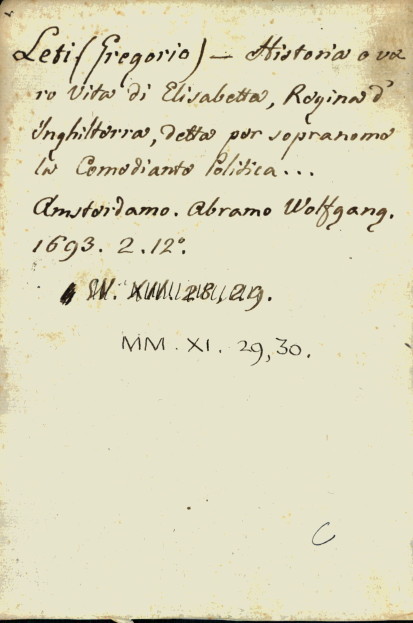 Leti (Gregorio) — Historia o va
ro Vita di Elisabetta, Regina d'
Inghilterra, detta per sopranome
la Comediante Politica...
Amsterdamo. Abramo Wolfgang.
1693. 2. 12º.
28, 29.
MM. XI. 29, 30.
C